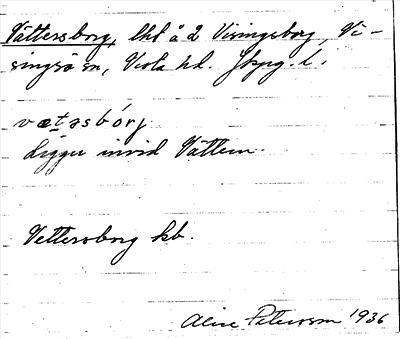 Vättersborg, lht å 2 Visingsborg, Vi-
singsö sn, Vista hd. Jkpg. l.
vætəsbórj
Ligger invid Vättern.
Vettersborg kb.
Aline Petersson 1936